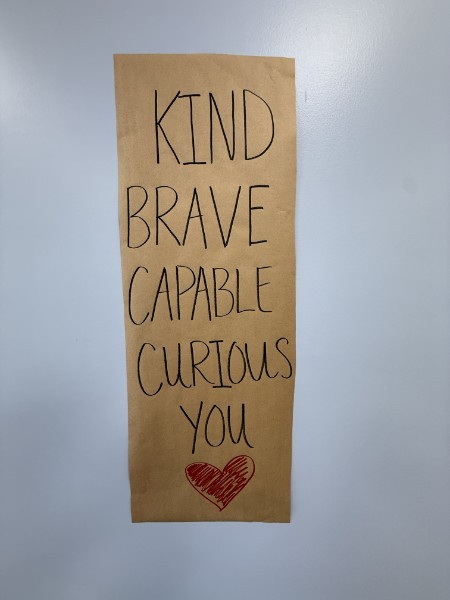 KIND
BRAVE
CAPABLE
CURIOUS
YOU